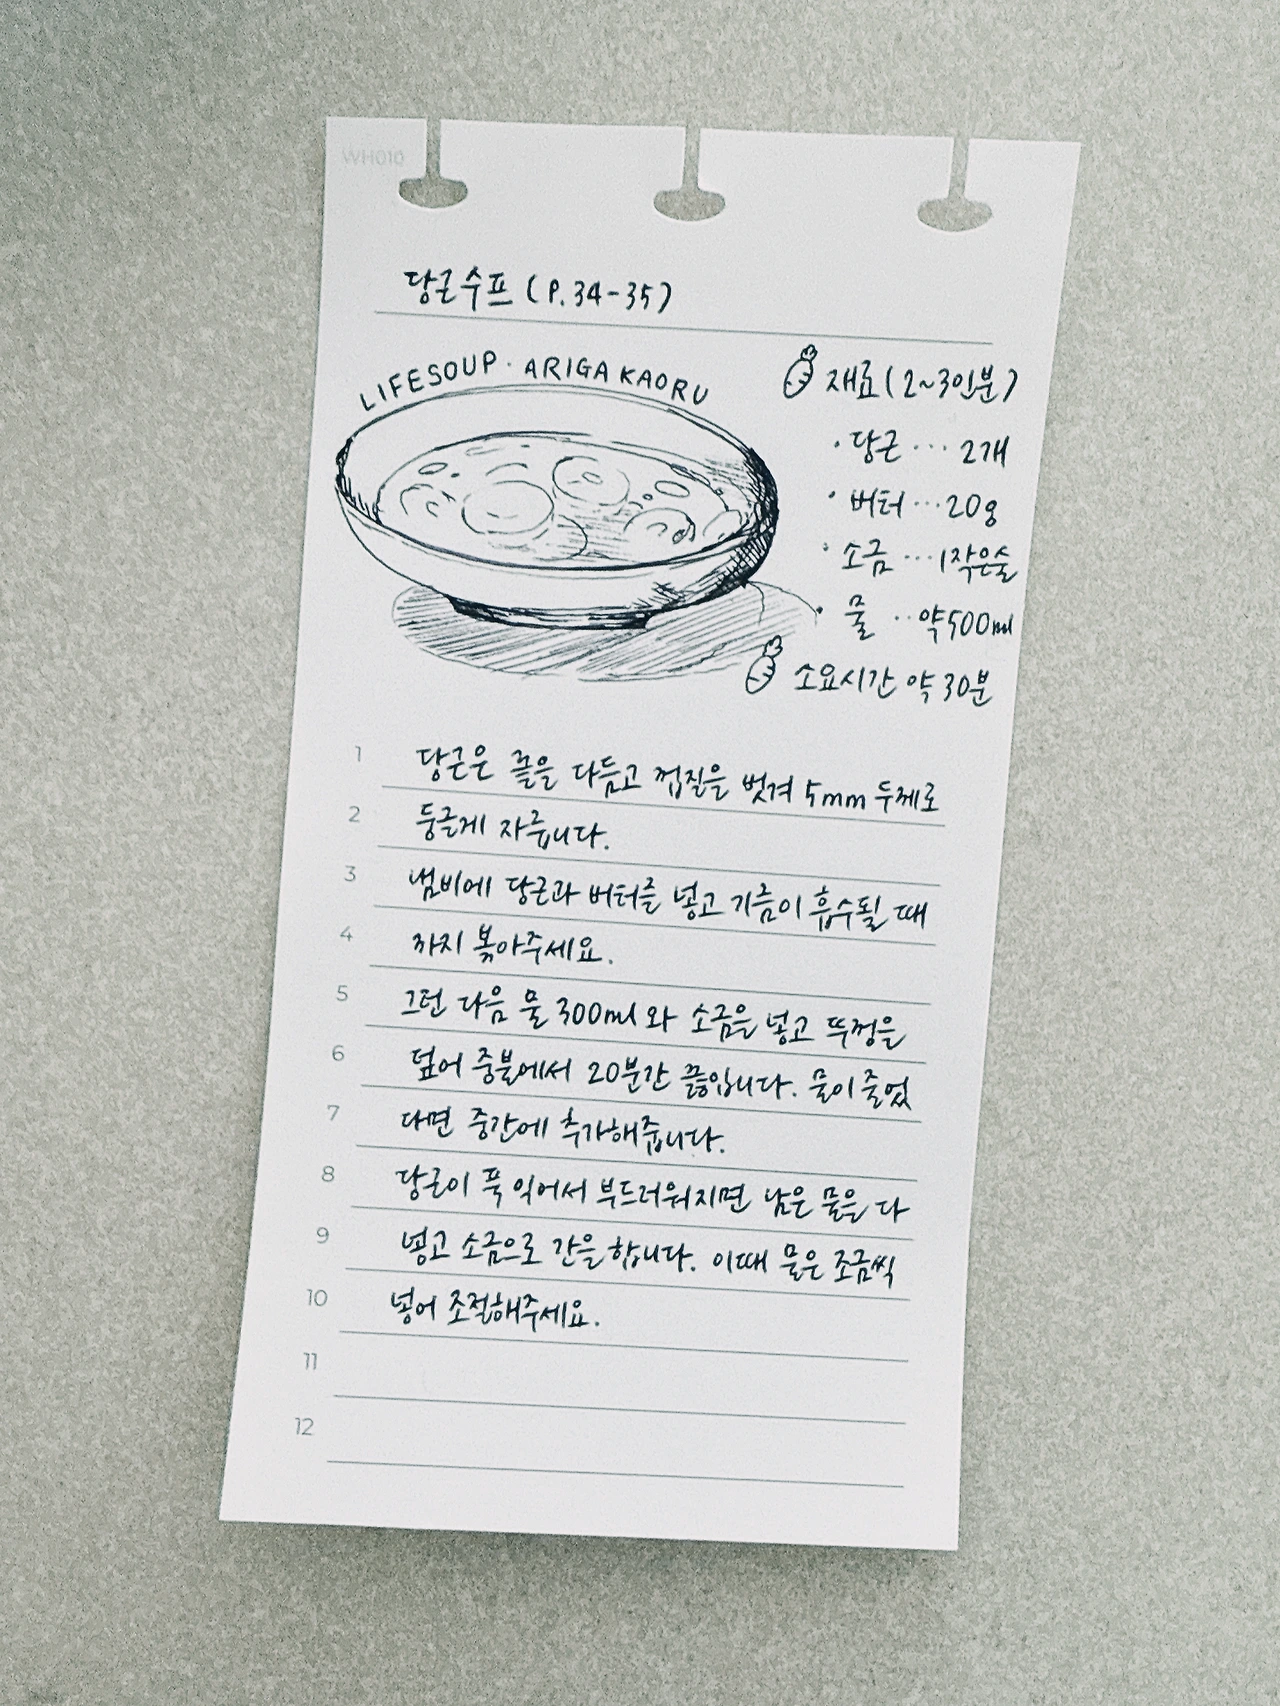 WH010
당근수프 (P. 34-35)
LIFESOUP · ARIGA KAORU
재료(2~3인분)
· 당근 ··· 2개
· 버터 ··· 20g
· 소금 ··· 1작은술
· 물 ·· 약500ml
소요시간 약 30분
1 당근은 끝을 다듬고 껍질을 벗겨 5mm 두께로
2 둥글게 자릅니다.
3 냄비에 당근과 버터를 넣고 기름이 흡수될 때
4 까지 볶아주세요.
5 그런 다음 물 300ml와 소금을 넣고 뚜껑을
6 덮어 중불에서 20분간 끓입니다. 물이 줄었
7 다면 중간에 추가해줍니다.
8 당근이 푹 익어서 부드러워지면 남은 물을 다
9 넣고 소금으로 간을 합니다. 이때 물은 조금씩
10 넣어 조절해주세요.
11
12